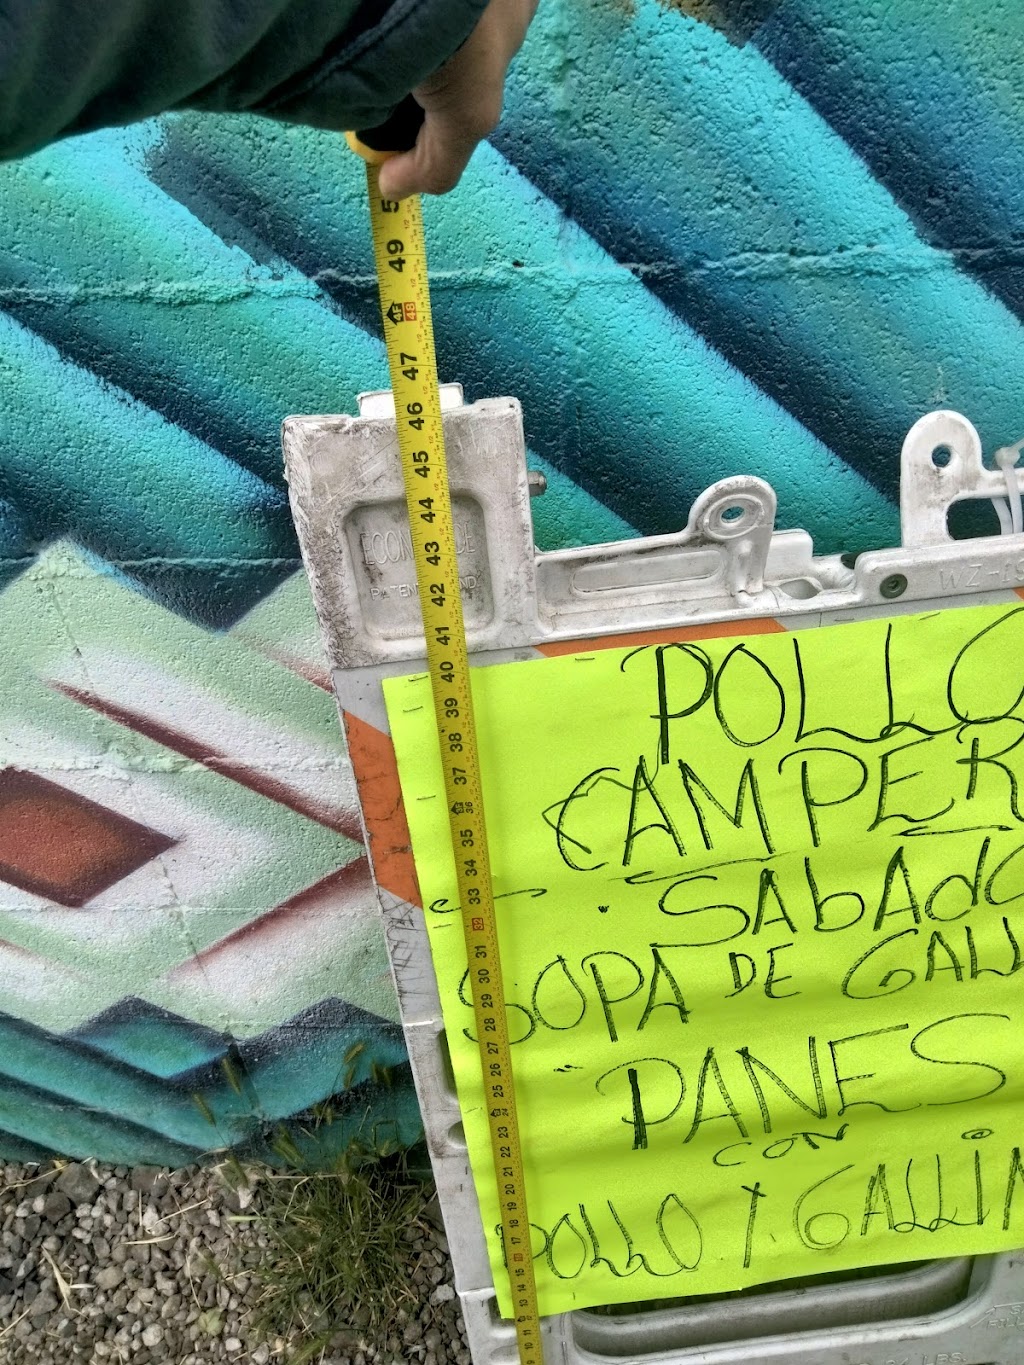 5
49
4F 48
47
46
45
44
43
42
41
40
39
38
37
36
35
34
33
32
31
30
29
28
27
26
25
24
23
22
21
20
19
18
17
16
15
14
13
12
11
10
9
PATEN
WZ-
POLLO
CAMPER
SAbAdO
SOPA DE GALL
PANES
CON
POLLO Y GALLIN